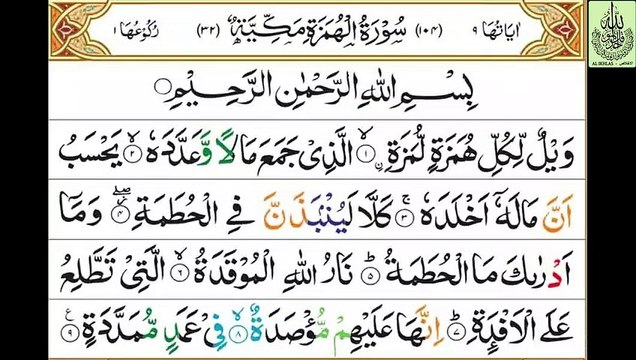 اٰيَاتُهَا ٩ (١٠٤) سُوْرَةُ الْهُمَزَةِ مَكِّيَّةٌ (٣٢) رُكُوْعُهَا ١
بِسْمِ اللهِ الرَّحْمٰنِ الرَّحِيْمِ
وَيْلٌ لِّكُلِّ هُمَزَةٍ لُّمَزَةٍ ١ الَّذِيْ جَمَعَ مَالًا وَّعَدَّدَهٗ ٢ يَحْسَبُ
اَنَّ مَالَهٗ اَخْلَدَهٗ ٣ كَلَّا لَيُنْۢبَذَنَّ فِي الْحُطَمَةِ ٤ وَمَا
اَدْرٰىكَ مَا الْحُطَمَةُ ٥ نَارُ اللهِ الْمُوْقَدَةُ ٦ الَّتِيْ تَطَّلِعُ
عَلَى الْاَفْـِٕدَةِ ٧ اِنَّهَا عَلَيْهِمْ مُّؤْصَدَةٌ ٨ فِيْ عَمَدٍ مُّمَدَّدَةٍ ٩
AL IKHLAS